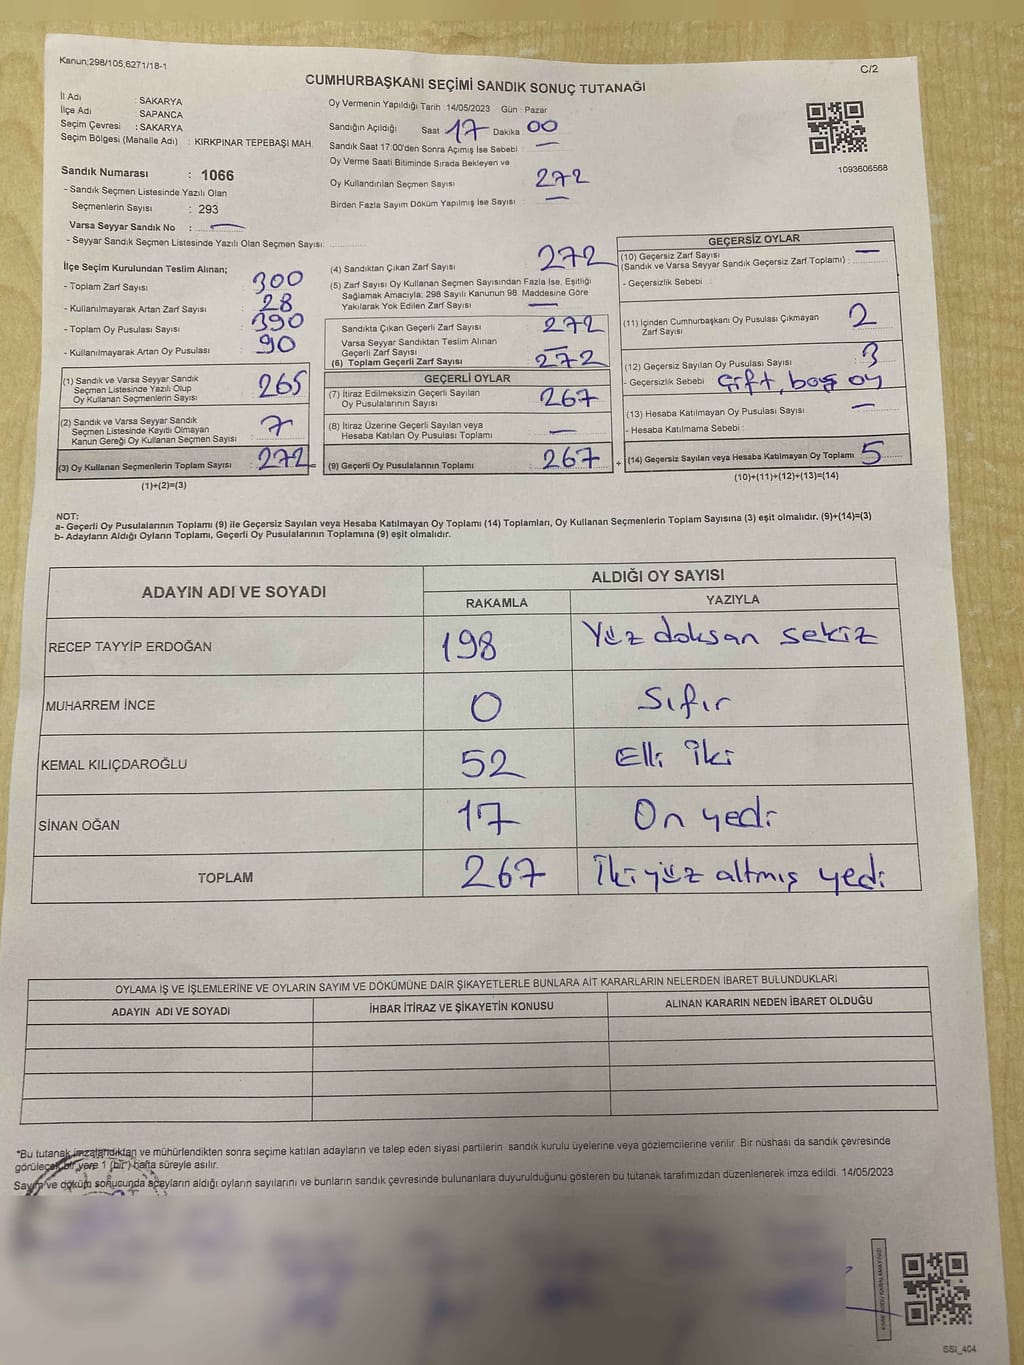 Kanun;298/105;6271/18-1
C/2
CUMHURBAŞKANI SEÇİMİ SANDIK SONUÇ TUTANAĞI
İl Adı : SAKARYA
İlçe Adı : SAPANCA
Seçim Çevresi : SAKARYA
Seçim Bölgesi (Mahalle Adı) : KIRKPINAR TEPEBAŞI MAH.
Sandık Numarası : 1066
- Sandık Seçmen Listesinde Yazılı Olan
Seçmenlerin Sayısı : 293
Varsa Seyyar Sandık No : —
- Seyyar Sandık Seçmen Listesinde Yazılı Olan Seçmen Sayısı:
Oy Vermenin Yapıldığı Tarih : 14/05/2023 Gün : Pazar
Sandığın Açıldığı Saat 17 Dakika 00
Sandık Saat 17:00'den Sonra Açımış İse Sebebi : —
Oy Verme Saati Bitiminde Sırada Bekleyen ve
Oy Kullandırılan Seçmen Sayısı : 272
Birden Fazla Sayım Döküm Yapılmış İse Sayısı : —
1093606568
İlçe Seçim Kurulundan Teslim Alınan;
- Toplam Zarf Sayısı : 300
- Kullanılmayarak Artan Zarf Sayısı : 28
- Toplam Oy Pusulası Sayısı : 390
- Kullanılmayarak Artan Oy Pusulası : 90
(1) Sandık ve Varsa Seyyar Sandık
Seçmen Listesinde Yazılı Olup
Oy Kullanan Seçmenlerin Sayısı : 265
(2) Sandık ve Varsa Seyyar Sandık
Seçmen Listesinde Kayıtlı Olmayan
Kanun Gereği Oy Kullanan Seçmen Sayısı : 7
(3) Oy Kullanan Seçmenlerin Toplam Sayısı : 272 =
(1)+(2)=(3)
(4) Sandıktan Çıkan Zarf Sayısı : 272
(5) Zarf Sayısı Oy Kullanan Seçmen Sayısından Fazla İse, Eşitliği
Sağlamak Amacıyla; 298 Sayılı Kanunun 98. Maddesine Göre
Yakılarak Yok Edilen Zarf Sayısı : —
Sandıkta Çıkan Geçerli Zarf Sayısı : 272
Varsa Seyyar Sandıktan Teslim Alınan
Geçerli Zarf Sayısı : —
(6) Toplam Geçerli Zarf Sayısı : 272
GEÇERLİ OYLAR
(7) İtiraz Edilmeksizin Geçerli Sayılan
Oy Pusulalarının Sayısı : 267
(8) İtiraz Üzerine Geçerli Sayılan veya
Hesaba Katılan Oy Pusulası Toplamı : —
(9) Geçerli Oy Pusulalarının Toplamı : 267 +
GEÇERSİZ OYLAR
(10) Geçersiz Zarf Sayısı
(Sandık ve Varsa Seyyar Sandık Geçersiz Zarf Toplamı) : —
- Geçersizlik Sebebi :
(11) İçinden Cumhurbaşkanı Oy Pusulası Çıkmayan
Zarf Sayısı : 2
(12) Geçersiz Sayılan Oy Pusulası Sayısı : 3
- Geçersizlik Sebebi : Çift, boş oy
(13) Hesaba Katılmayan Oy Pusulası Sayısı : —
- Hesaba Katılmama Sebebi :
(14) Geçersiz Sayılan veya Hesaba Katılmayan Oy Toplamı : 5
(10)+(11)+(12)+(13)=(14)
NOT:
a- Geçerli Oy Pusulalarının Toplamı (9) ile Geçersiz Sayılan veya Hesaba Katılmayan Oy Toplamı (14) Toplamları, Oy Kullanan Seçmenlerin Toplam Sayısına (3) eşit olmalıdır. (9)+(14)=(3)
b- Adayların Aldığı Oyların Toplamı, Geçerli Oy Pusulalarının Toplamına (9) eşit olmalıdır.
ADAYIN ADI VE SOYADI
ALDIĞI OY SAYISI
RAKAMLA YAZIYLA
RECEP TAYYİP ERDOĞAN 198 Yüz doksan sekiz
MUHARREM İNCE 0 Sıfır
KEMAL KILIÇDAROĞLU 52 Elli iki
SİNAN OĞAN 17 On yedi
TOPLAM 267 İki yüz altmış yedi
OYLAMA İŞ VE İŞLEMLERİNE VE OYLARIN SAYIM VE DÖKÜMÜNE DAİR ŞİKAYETLERLE BUNLARA AİT KARARLARIN NELERDEN İBARET BULUNDUKLARI
ADAYIN ADI VE SOYADI
İHBAR İTİRAZ VE ŞİKAYETİN KONUSU
ALINAN KARARIN NEDEN İBARET OLDUĞU
*Bu tutanak imzalandıktan ve mühürlendikten sonra seçime katılan adayların ve talep eden siyasi partilerin sandık kurulu üyelerine veya gözlemcilerine verilir .Bir nüshası da sandık çevresinde
görülecek bir yere 1 (bir ) hafta süreyle asılır.
Sayım ve döküm sonucunda adayların aldığı oyların sayılarını ve bunların sandık çevresinde bulunanlara duyurulduğunu gösteren bu tutanak tarafımızdan düzenlenerek imza edildi. 14/05/2023
SSI_404